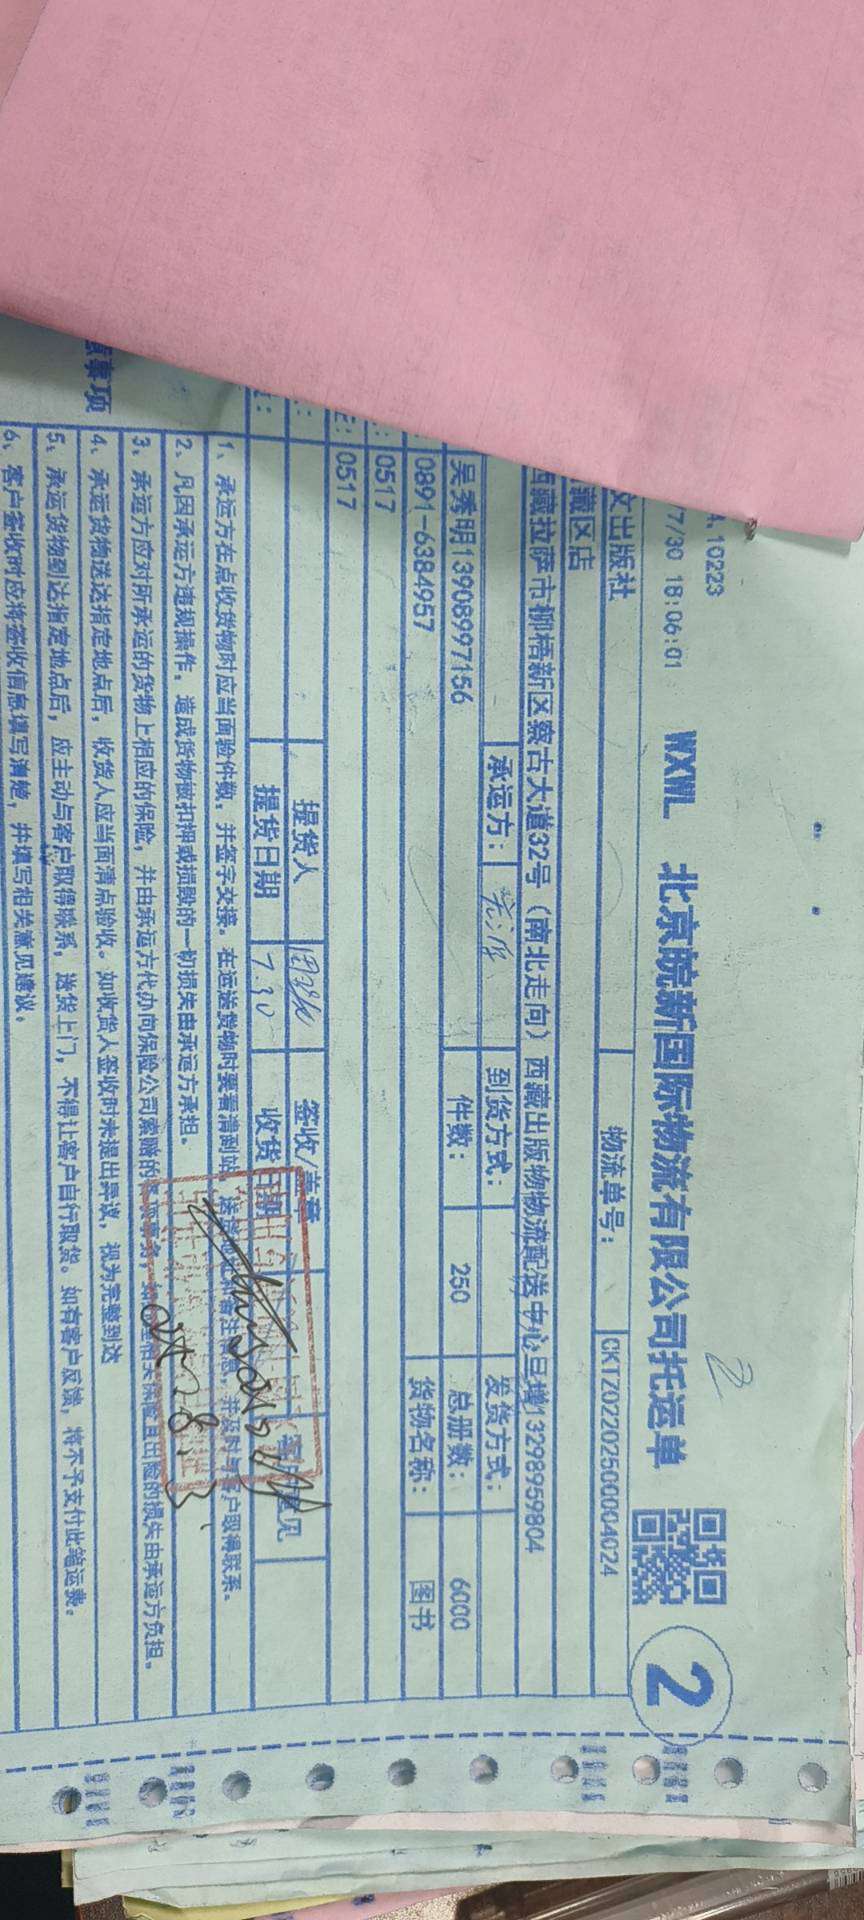 4. 10223
7/30 18:06:01
WXWL 北京皖新国际物流有限公司托运单
2
2
文出版社
物流单号: CKTZ022025000004024
藏区店
西藏拉萨市柳梧新区察古大道32号（南北走向）西藏出版物物流配送中心旦增13298959804
承运方:
到货方式:
发货方式:
吴秀明13908997156
件数: 250
总册数: 6000
0891-6384957
货物名称: 图书
0517
0517
提货人
签收/盖章
客户意见
提货日期 7.30
收货日期
意事项
1、承运方在点收货物时应当面验件数，并签字交接。在运送货物时要看清到站、送货地址和备注信息，并及时与客户取得联系。
2、凡因承运方违规操作，造成货物被扣押或损毁的一切损失由承运方承担。
3、承运方应对所承运的货物上相应的保险，并由承运方代办向保险公司索赔的 损失由承运方负担。
4、承运货物送达指定地点后，收货人应当面清点验收。如收货人签收时未提出异议，视为完整到达
5、承运货物到达指定地点后，应主动与客户取得联系，送货上门，不得让客户自行取货。如有客户反馈，将不予支付此笔运费。
6、客户签收时应将签收信息填写清楚，并填写相关意见建议。